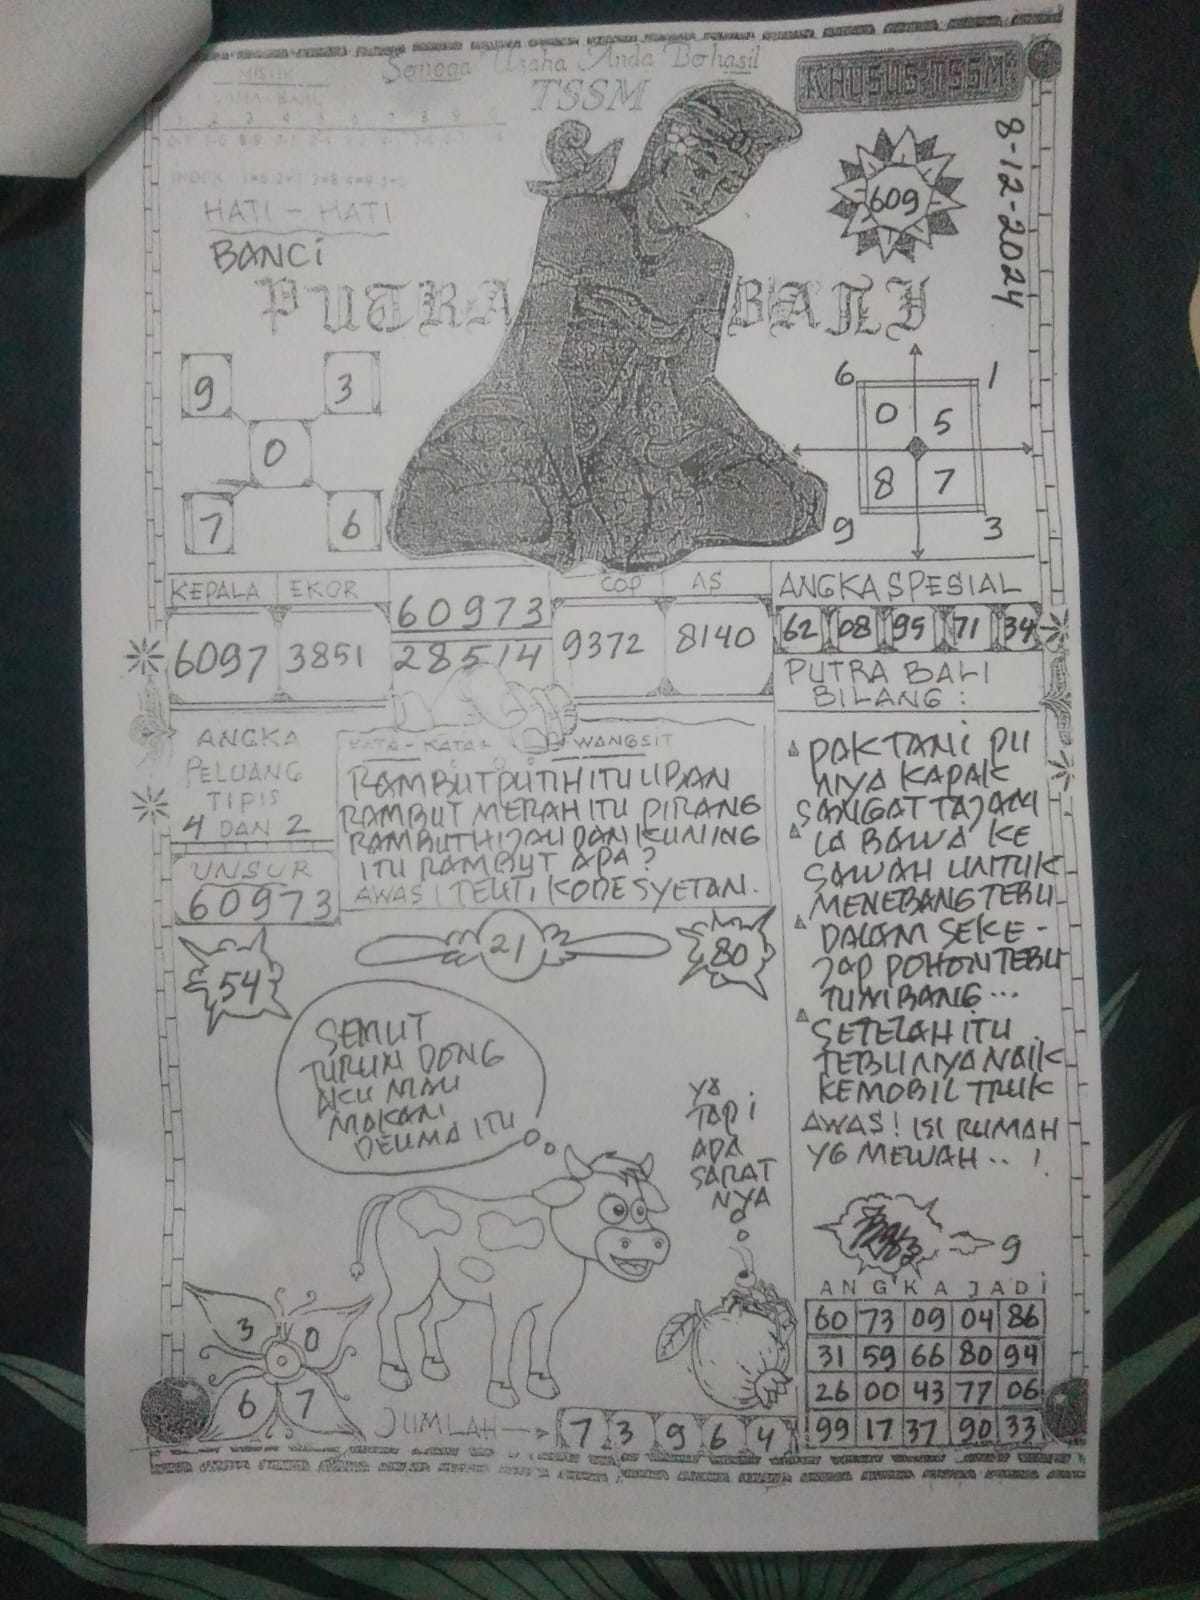 Semoga Usaha Anda Berhasil
TSSM
KHUSUS TSSM
8-12-2024
MISTIK
LAMA - BARU
1 2 3 4 5 6 7 8 9
INDEX
HATI - HATI
BANCi
609
PUTRA BALI
9 3
0
7 6
6 1
0 5
8 7
9 3
KEPALA EKOR
6097 3851
60973
28514
COP AS
9372 8140
ANGKA SPESIAL
62 08 95 71 34
PUTRA BALI
BILANG :
PAK TANi PU
NYA KAPAK
SANGAT TAJAM
IA BAWA KE
SAWAH UNTUK
MENEBANG TEBU
DALAM SEKE -
JAP POHON TEBU
TUMBANG...
SETELAH ITU
TEBUNYA NAIK
KEMOBIL TRUK
AWAS! ISI RUMAH
YG MEWAH.. !
ANGKA
PELUANG
TIPIS
4 DAN 2
UNSUR
60973
KATA - KATA WANGSIT
RAMBUT PUTIH ITU UBAN
RAMBUT MERAH ITU PIRANG
RAMBUT HIJAU DAN KUNING
ITU RAMBUT APA?
AWAS! TELITI KODE SYETAN.
54
21
80
SEMUT
TURUN DONG
AKU MAU
MAKAN
DELIMA ITU
YA
TAPi
ADA
SARAT
NYA
9
ANGKA JADi
60 73 09 04 86
31 59 66 80 94
26 00 43 77 06
99 17 37 90 33
3 0
6 7
JUMLAH
7 3 9 6 4